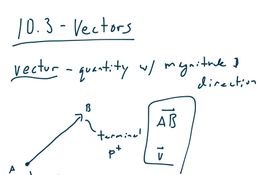 10.3 - Vectors
vector - quantity w/ magnitude &
direction
B
AB
terminal
pt
v
A